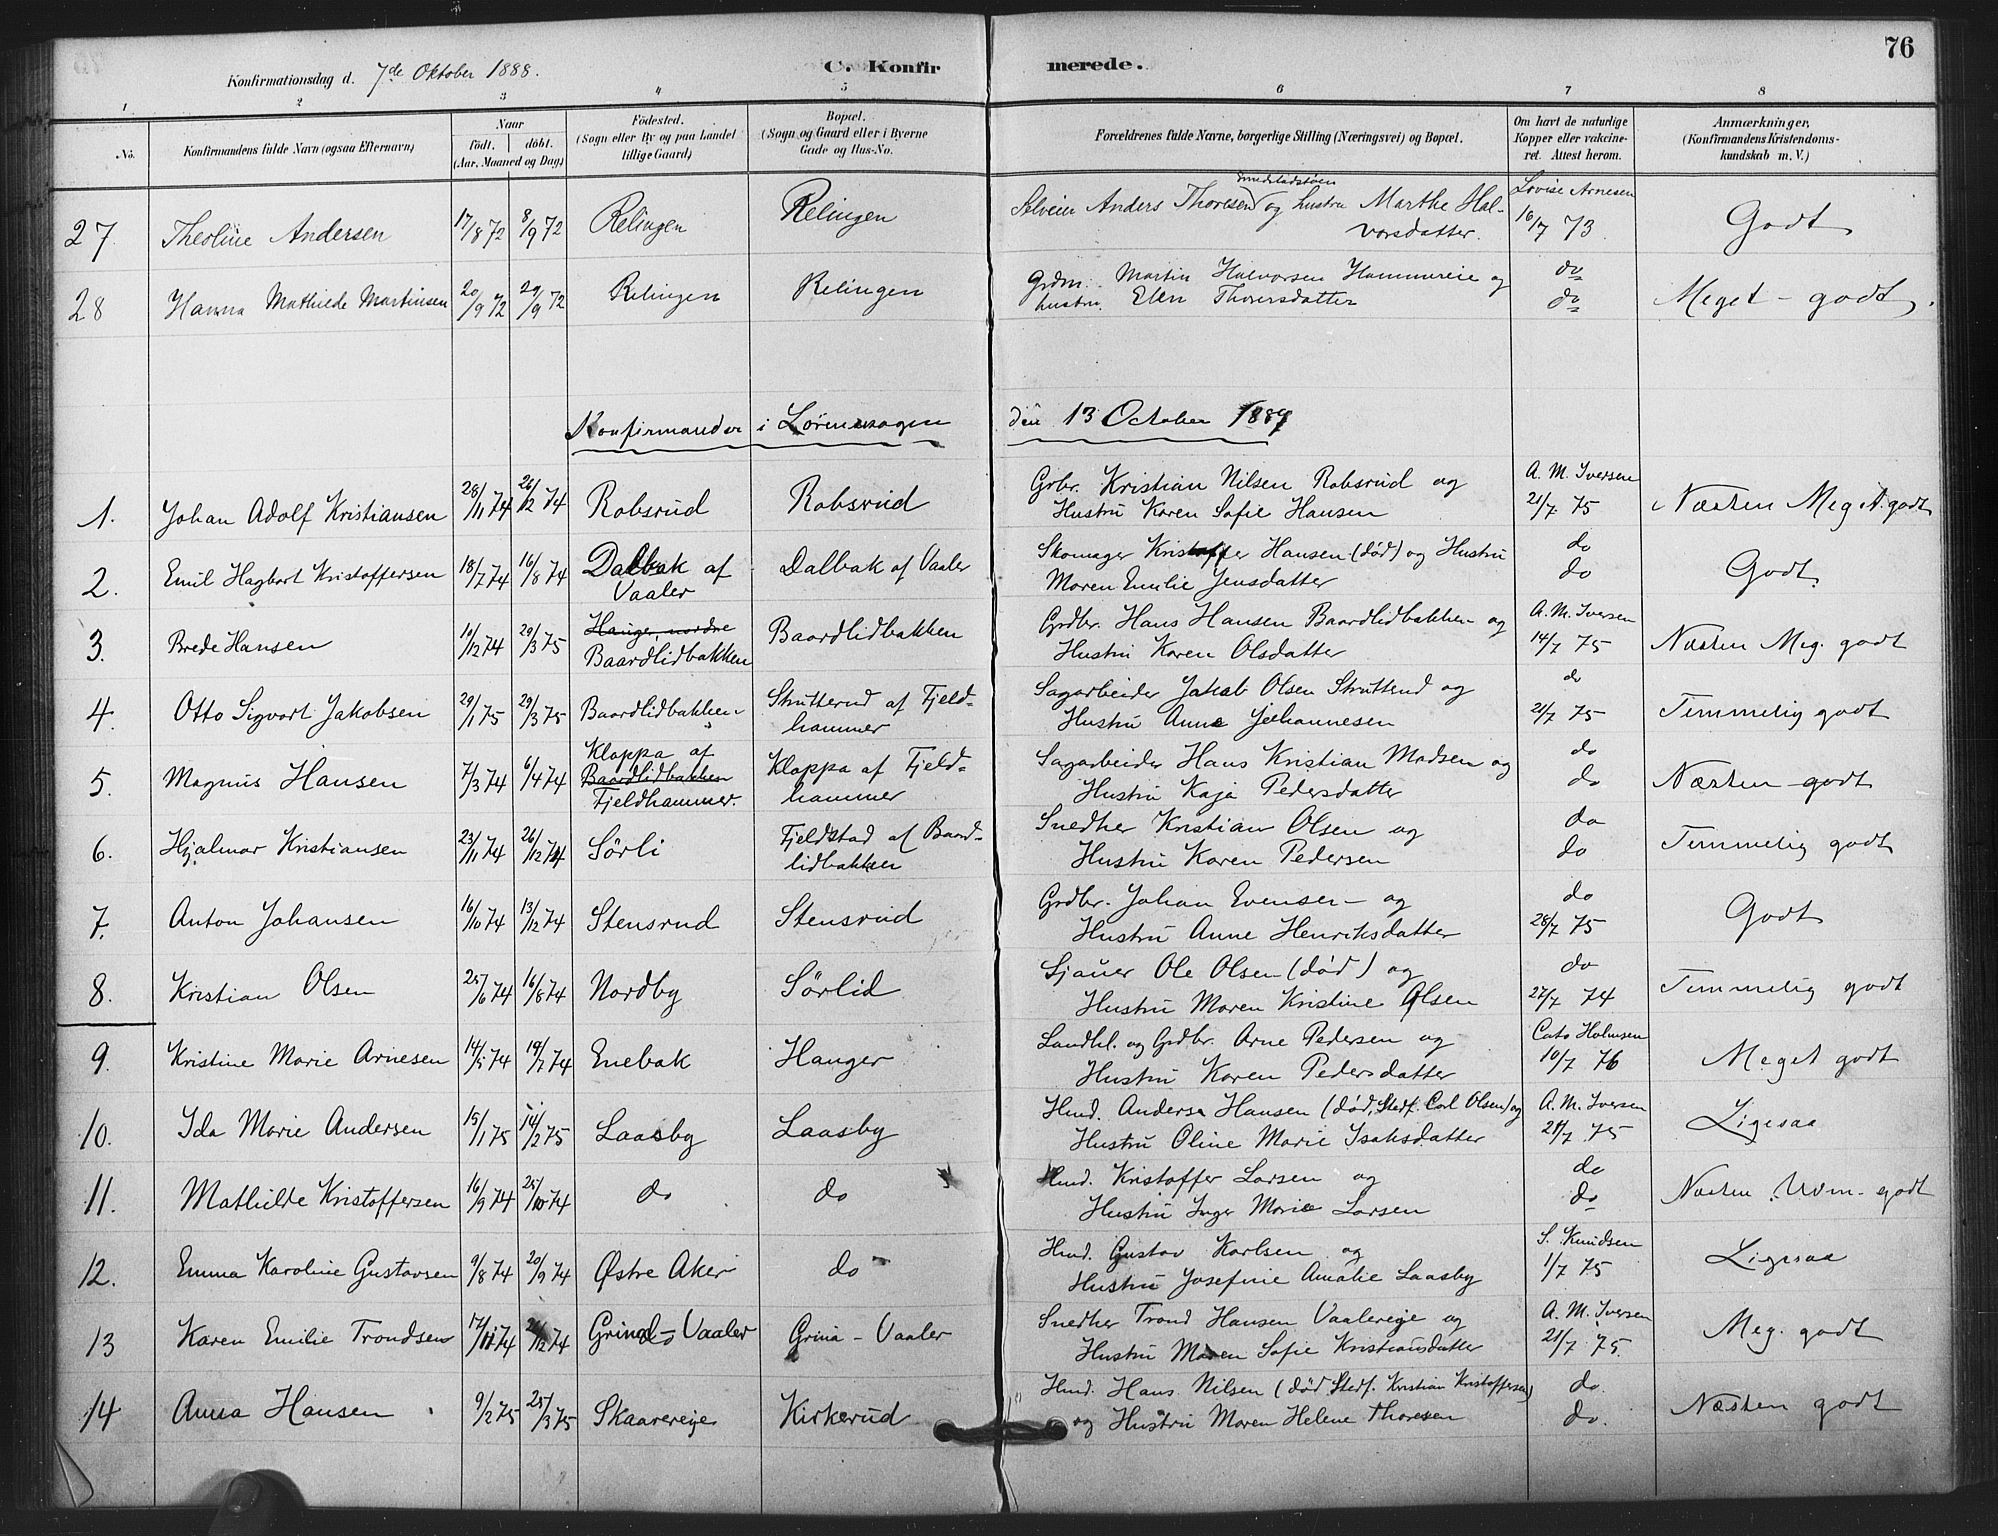 76
Konfirmationsdag d. 7de Oktober 1888.
C. Konfirmerede.
1 2 3 4 5 6 7 8
No.
Konfirmandens fulde Navn (ogsaa Efternavn)
Naar
født. døbt.
(Aar, Maaned og Dag)
Fødested.
(Sogn eller By og paa Landet
tillige Gaard)
Bopæl.
(Sogn og Gaard eller i Byerne
Gade og Hus-No.
Forældrenes fulde Navne, borgerlige Stilling (Næringsvei) og Bopæl.
Om havt de naturlige
Kopper eller vakcine-
ret. Attest herom.
Anmærkninger,
(Konfirmandens Kristendoms-
kundskab m. V.)
27 Theoline Andersen 17/8 72 8/9 72 Relingen Relingen Selveier Anders Thoresen Smedstadstøen og hustru Marthe Hal-
vorsdatter. Lovise Arnesen 16/7 73 Godt
28 Hanna Mathilde Martinsen 20/9 72 29/9 72 Relingen Relingen Grdm. Martin Halvorsen Hammereie og
hustru. Elen Thorersdatter do do Meget-godt.
Konfirmander i Lørenssogen den 13 October 1889
1. Johan Adolf Kristiansen 28/11 74 26/12 74 Robsrud Robsrud Grbr. Kristian Nilsen Robsrud og
Hustru Karen Sofie Hansen A. M. Iversen 21/7 75 Næsten Meget godt
2. Emil Hagbart Kristoffersen 18/7 74 16/8 74 Dalbak af
Vaaler Dalbak af Vaaler Skomager Kristoffer Hansen (død) og Hustru
Maren Emilie Jensdatter do do Godt.
3. Brede Hansen 10/12 74 29/3 75 Hauger, nordre
Baardlidbakken Baardlidbakken Grdbr. Hans Hansen Baardlidbakken og
Hustru Karen Olsdatter A. M. Iversen 14/7 75 Næsten Meg. godt
4. Otto Sigvart Jakobsen 29/1 75 29/3 75 Baardlidbakken Strutterud af Fjeld-
hammer Sagarbeider Jakob Olsen Strutterud og
Hustru Anne Johannesen do 21/7 75 Temmelig godt
5. Magnus Hansen 7/3 74 6/4 74 Klappa af
Baardlidbakken
Fjeldhammer. Klappa af Fjeld-
hammer Sagarbeider Hans Kristian Madsen og
Hustru Kaja Pedersdatter do do Næsten godt
6. Hjalmar Kristiansen 23/11 74 26/12 74 Sørli Fjeldstad af Baard-
lidbakken Snedker Kristian Olsen og
Hustru Karen Pedersen do do Temmelig godt
7. Anton Johansen 16/10 74 13/12 74 Stensrud Stensrud Grdbr. Johan Evensen og
Hustru Anne Henriksdatter do 28/7 75 Godt
8. Kristian Olsen 25/6 74 16/8 74 Nordby Sørlid Sjauer Ole Olsen (død) og
Hustru Maren Kristine Olsen do 27/7 74 Temmelig godt
9. Kristine Marie Arnesen 14/5 74 19/7 74 Enebak Hauger Landhl. og Grdbr. Arne Pedersen og
Hustru Karen Pedersdatter Cato Holmsen 10/7 76 Meget godt
10. Ida Marie Andersen 15/1 75 14/2 75 Laasby Laasby Hmd. Anders Hansen (død, Stedf. Carl Olsen) og
Hustru Oline Marie Isaksdatter A. M. Iversen 21/7 75 Ligesaa
11. Mathilde Kristoffersen 16/9 74 25/10 74 do do Hmd. Kristoffer Larsen og
Hustru Inger Marie Larsen do do Næsten godt
12. Emma Karoline Gustavsen 9/8 74 20/9 74 Østre Aker do Hmd. Gustav Karlsen og
Hustru Josefine Amalie Laasby S. Knudsen 1/7 75 Ligesaa
13 Karen Emilie Trondsen 17/11 74 26/12 74 Grina - Vaaler Grina - Vaaler Snedker Trond Hansen Vaalereie og
Hustru Maren Sofie Kristiansdatter A. M. Iversen 21/7 75. Meg. godt
14 Anna Hansen 9/2 75 25/3 75 Skaarereie Kirkerud Hmd. Hans Nilsen (død Stedf. Kristian Kristoffersen)
og Hustru Maren Helene Thoresen do. do. Næsten godt